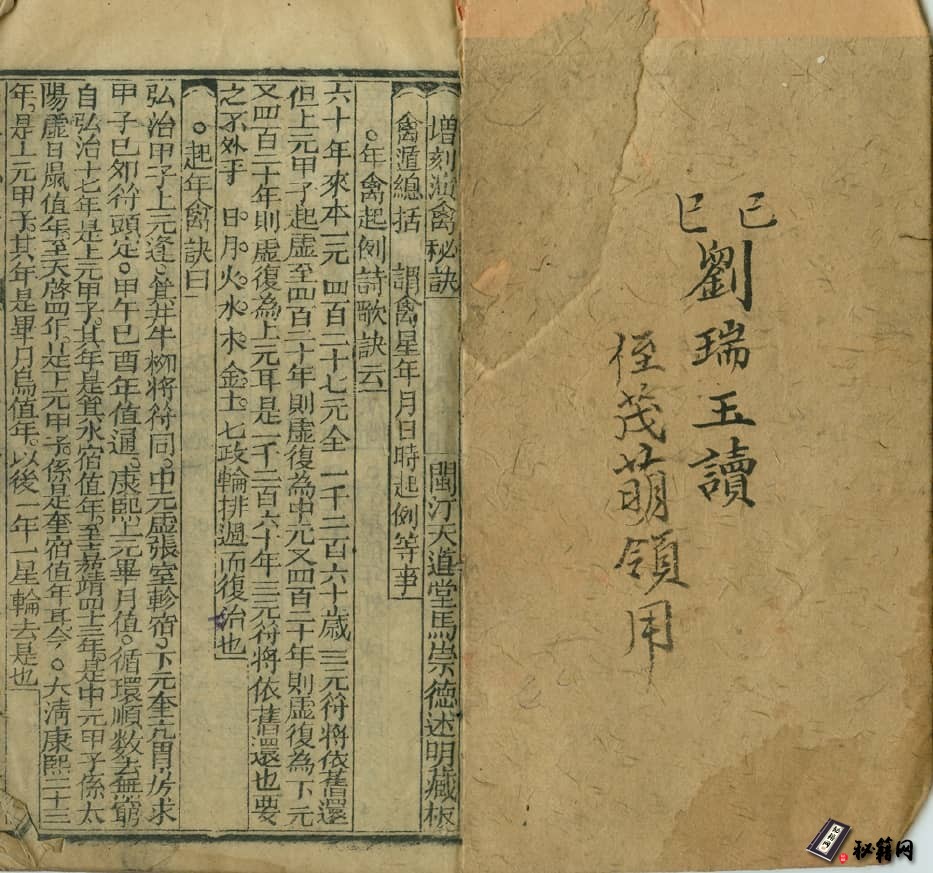 己巳
劉瑞玉讀
侄茂萌領用
增刻演禽秘訣 閩汀天道堂馬崇德述明藏板
禽遁總括 謂禽星年月日時起例等事
○年禽起例詩歌訣云
六十年來本一元 四百二十七元全 一千二百六十歲 三元符將依舊還
但上元甲子起虛至四百二十年則虛復為中元又四百二十年則虛復為下元
又四百二十年則虛復為上元耳是一千二百六十年三元符將依舊還也要
之不外乎 日月火水木金土七政輪排週而復治也
○起年禽訣曰
弘治甲子上元逢箕井牛柳將符同中元虛張室軫宿下元奎亢胃房求
甲子己卯符頭定甲午己酉年值通康熙上元畢月值循環順數去無窮
自弘治十七年是上元甲子其年是箕水宿值年至嘉靖四十三年是中元甲子係太
陽虛日鼠值年至天啓四年是下元甲子係是奎宿值年耳今○大清康熙二十三
年是上元甲子其年是畢月烏值年以後一年一星輪去是也
秘籍网